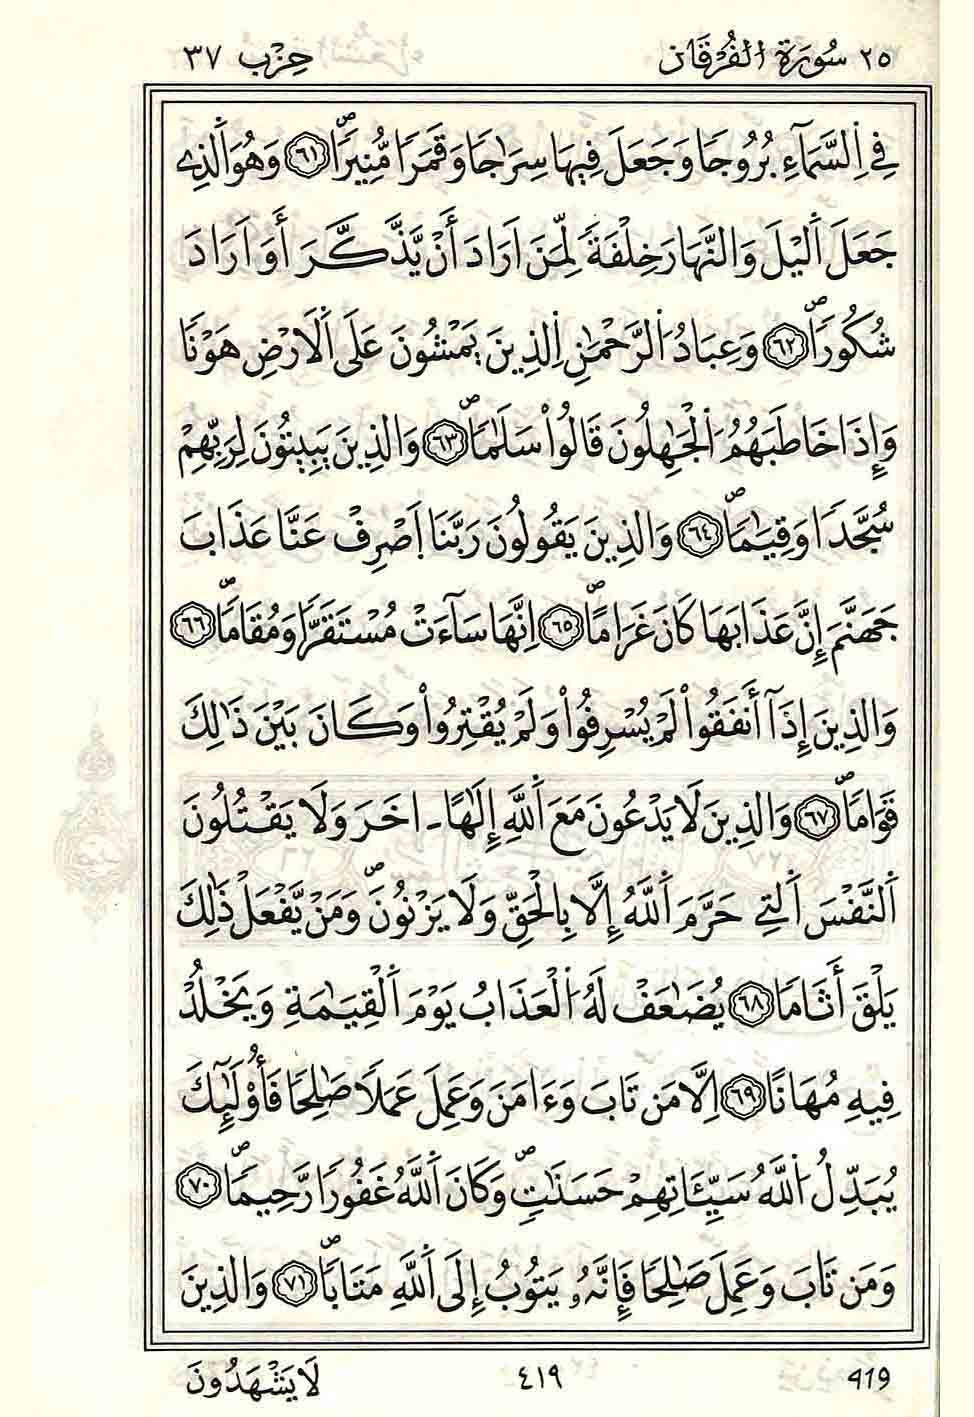 ٢٥ سُورَةُ الْفُرْقَانِ حِزْب ٣٧
فِے اِ۬لسَّمَآءِ بُرُوجاٗ وَجَعَلَ فِيهَا سِرَٰجاٗ وَقَمَراٗ مُّنِيراٗۖ ٦١ وَهُوَ اَ۬لذِے
جَعَلَ اَ۬ليْلَ وَالنَّهَارَ خِلْفَةٗ لِّمَنَ اَرَادَ أَنْ يَّذَّكَّرَ أَوَ اَرَادَ
شُكُوراٗۖ ٦٢ وَعِبَادُ اُ۬لرَّحْمَٰنِ اِ۬لذِينَ يَمْشُونَ عَلَي اَ۬لَارْضِ هَوْناٗ
وَإِذَا خَاطَبَهُمُ اُ۬لْجَٰهِلُونَ قَالُواْ سَلَٰماٗۖ ٦٣ وَالذِينَ يَبِيتُونَ لِرَبِّهِمْ
سُجَّداٗ وَقِيَٰماٗۖ ٦٤ وَالذِينَ يَقُولُونَ رَبَّنَا اَ۪صْرِفْ عَنَّا عَذَابَ
جَهَنَّمَ إِنَّ عَذَابَهَا كَانَ غَرَاماًۖ ٦٥ اِنَّهَا سَآءَتْ مُسْتَقَرّاٗ وَمُقَاماٗۖ ٦٦
وَالذِينَ إِذَآ أَنفَقُواْ لَمْ يُسْرِفُواْ وَلَمْ يُقْتِرُواْ وَكَانَ بَيْنَ ذَٰلِكَ
قَوَاماٗۖ ٦٧ وَالذِينَ لَا يَدْعُونَ مَعَ اَ۬للَّهِ إِلَٰهاً ـ اخَرَ وَلَا يَقْتُلُونَ
اَ۬لنَّفْسَ اَ۬لتِے حَرَّمَ اَ۬للَّهُ إِلَّا بِالْحَقِّ وَلَا يَزْنُونَۖ وَمَنْ يَّفْعَلْ ذَٰلِكَ
يَلْقَ أَثَاماٗ ٦٨ يُضَٰعَفْ لَهُ اُ۬لْعَذَابُ يَوْمَ اَ۬لْقِيَٰمَةِ وَيَخْلُدْ
فِيهِ مُهَاناً ٦٩ اِلَّا مَن تَابَ وَءَامَنَ وَعَمِلَ عَمَلاٗ صَٰلِحاٗ فَأُوْلَٰٓئِكَ
يُبَدِّلُ اُ۬للَّهُ سَيِّـَٔاتِهِمْ حَسَنَٰتٖۖ وَكَانَ اَ۬للَّهُ غَفُوراٗ رَّحِيماٗۖ ٧٠
وَمَن تَابَ وَعَمِلَ صَٰلِحاٗ فَإِنَّهُۥ يَتُوبُ إِلَي اَ۬للَّهِ مَتَاباٗۖ ٧١ وَالذِينَ
419 ٤١٩ لَا يَشْهَدُونَ